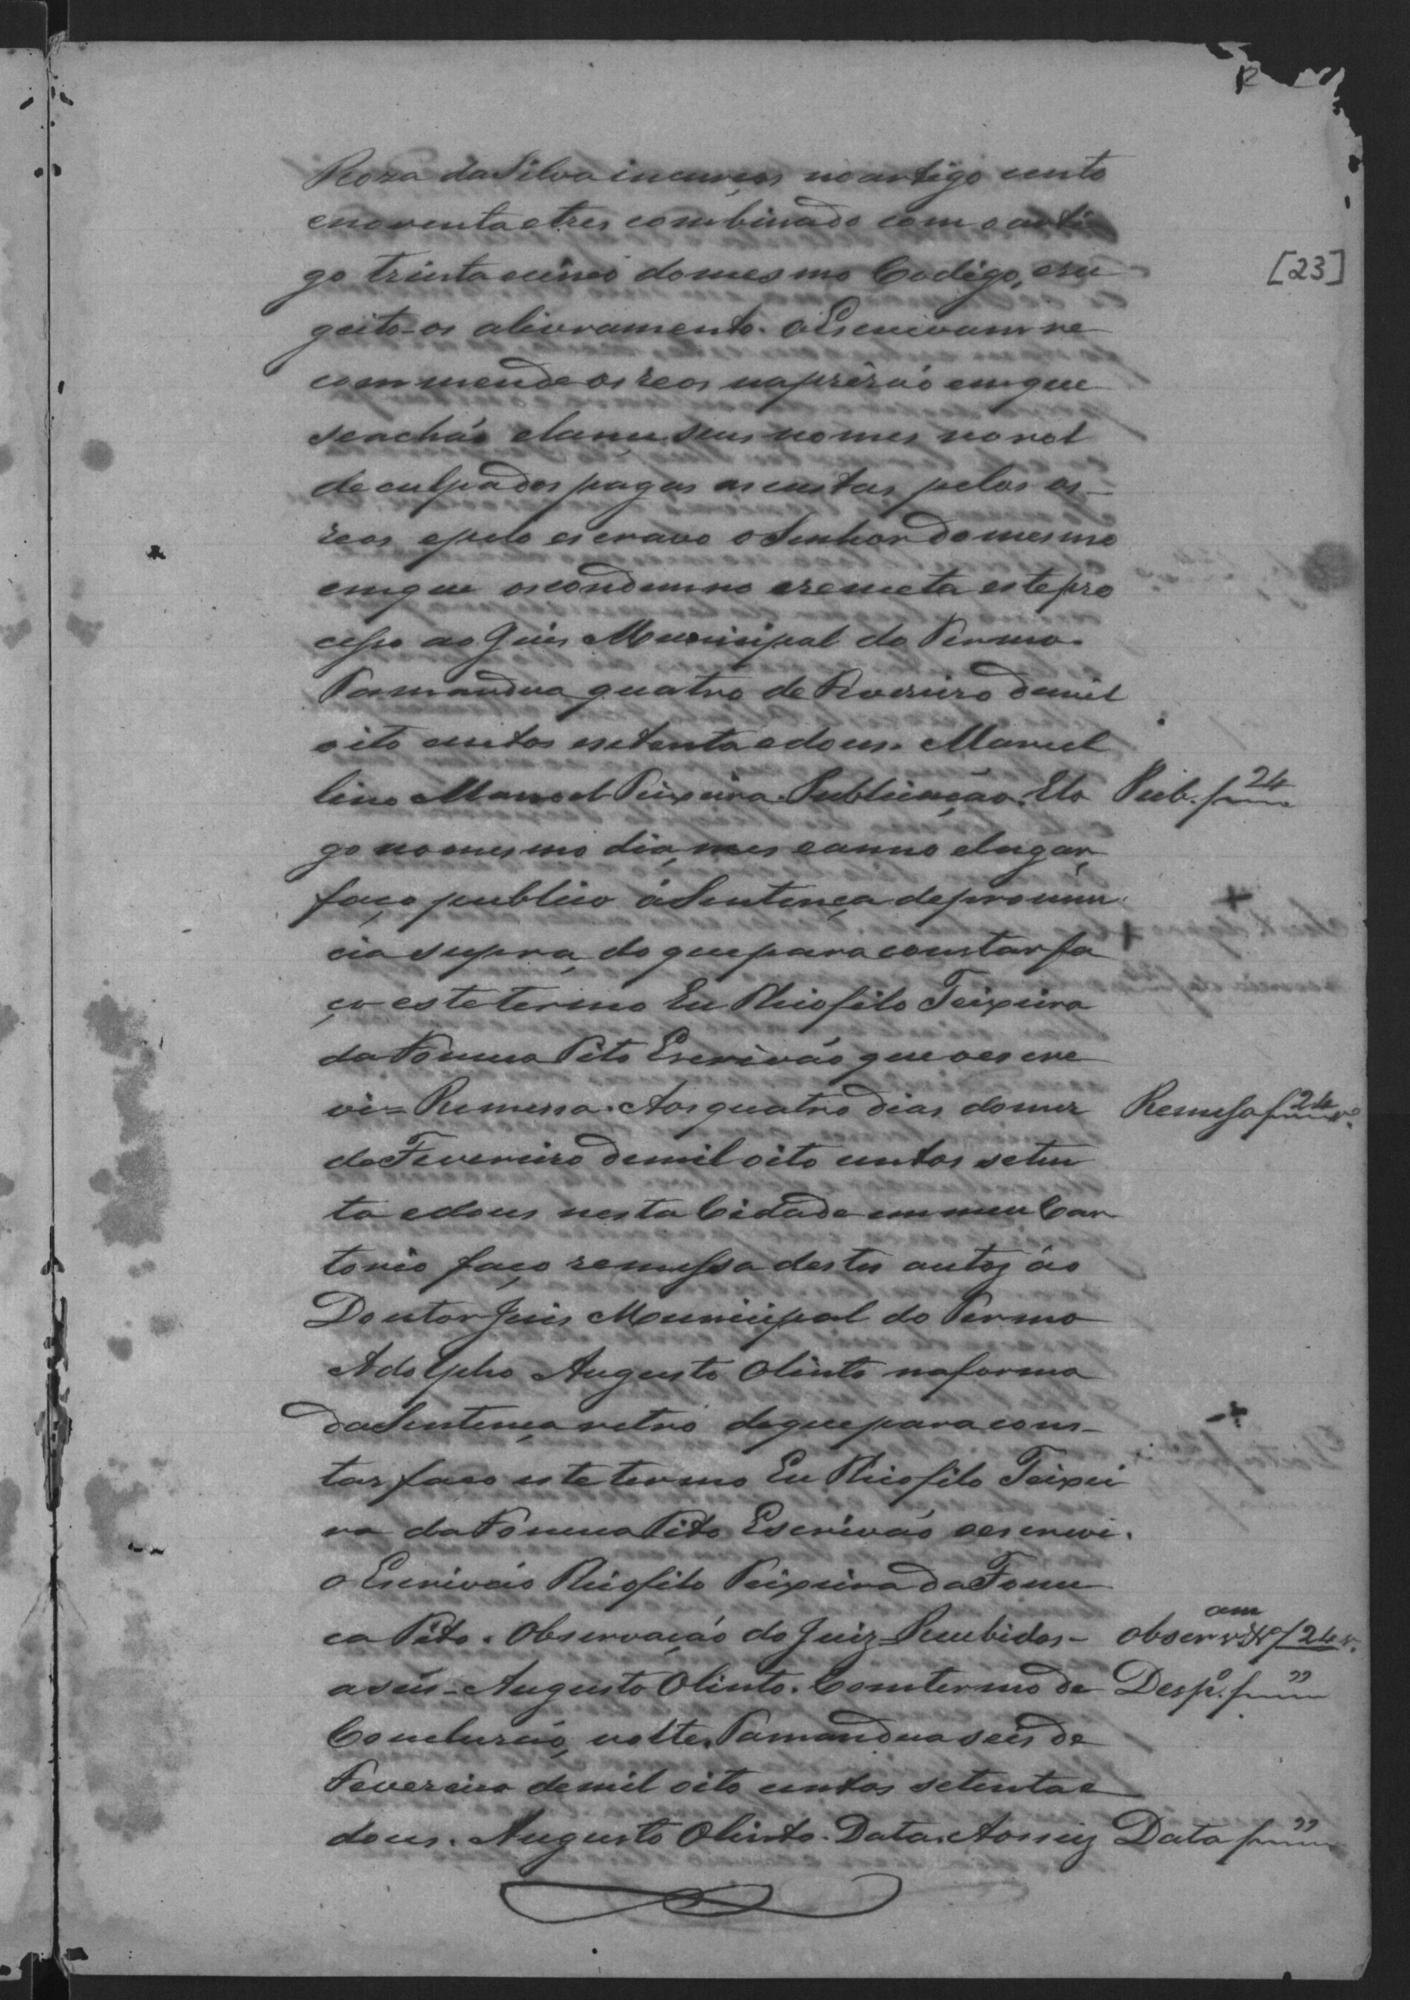 R
[23]
Roza da Silva incursos no artigo cento
e noventa e tres combinado com o arti
go trinta e cinco do mesmo Codigo, e su
geito-os a livramento. O Escrivam re
commende os reos na prizão em que
se achão e lance seus nomes no rol
de culpados pagas as custas pelos os
reos e pelo escravo o Senhor do mesmo
em que os condemno e remeta este pro
cesso ao Juis Municipal do Termo.
Tamandua quatro de Fevereiro de mil
oito centos e setenta e dous. Marcel
lino Manoel Teixeira. Publicação. Elo Pub. f 24
go no mesmo dia, mes e anno e lugar,
faço publico á Sentença de pronun
cia supra, do que para constar fa
ço este termo Eu Theofilo Teixeira
da Fonceca Pito Escrivão que o escre
vi = Remessa. Aos quatro dias do mez Remessa f 24 vº.
de Fevereiro de mil oito centos seten
ta e dous nesta Cidade em meu Car
torio faço remessa destes autos ao
Doutor Juis Municipal do Termo
Adolpho Augusto Olinto na forma
da Sentença retro do que para cons-
tar faço este termo Eu Theofilo Teixei
ra da Fonceca Pito Escrivão o escrevi.
O Escrivão Theofilo Teixeira da Fonce
ca Pito. Observação do Juiz Recebidos- Observam f 24 v.
a seis- Augusto Olinto. Com termo de Despº. f "
Concluzão, volte. Tamandua seis de
Fevereiro de mil oito centos setenta e
dous. Augusto Olinto. Data. Aos seis Data f "